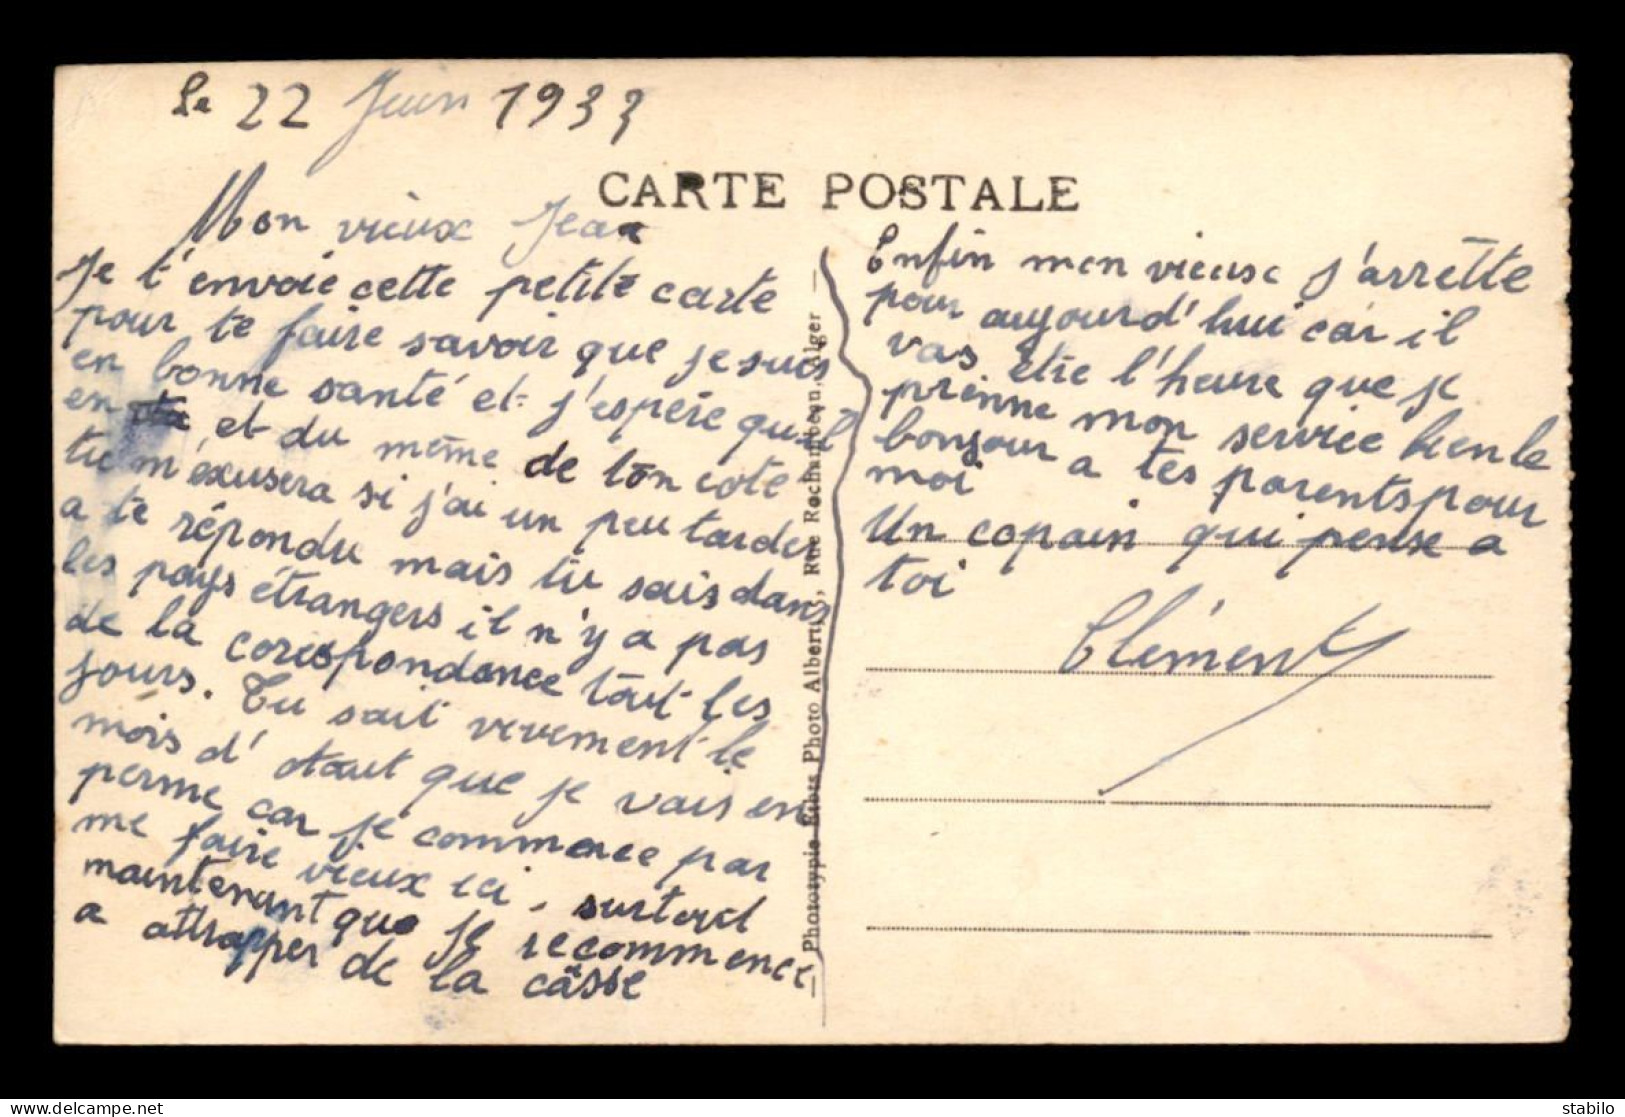 Le 22 Juin 1933
CARTE POSTALE
Mon vieux Jean
Je t'envoie cette petite carte
pour te faire savoir que je suis
en bonne santé et j'espère qu'il
en et du même de ton côte
tu m'éxusera si j'ai un peu tarder
a te répondu mais tu sais dans
les pays étrangers il n'y a pas
de la corespondance tout les
jours. Tu sait vivement le
mois d' que je vais en
perme car je commence par
me faire vieux ici, surtout
maintenant que je recommence
a attrapper de la câsse
Phototypie Photo Albert, Rue Rochambeau, Alger
Enfin mon vieux j'arrête
pour aujourd'hui car il
vas être l'heure que je
prenne mon service bien le
bonjour a tes parents pour
moi
Un copain qui pense a
toi
Clément
stabilo
delcampe.net